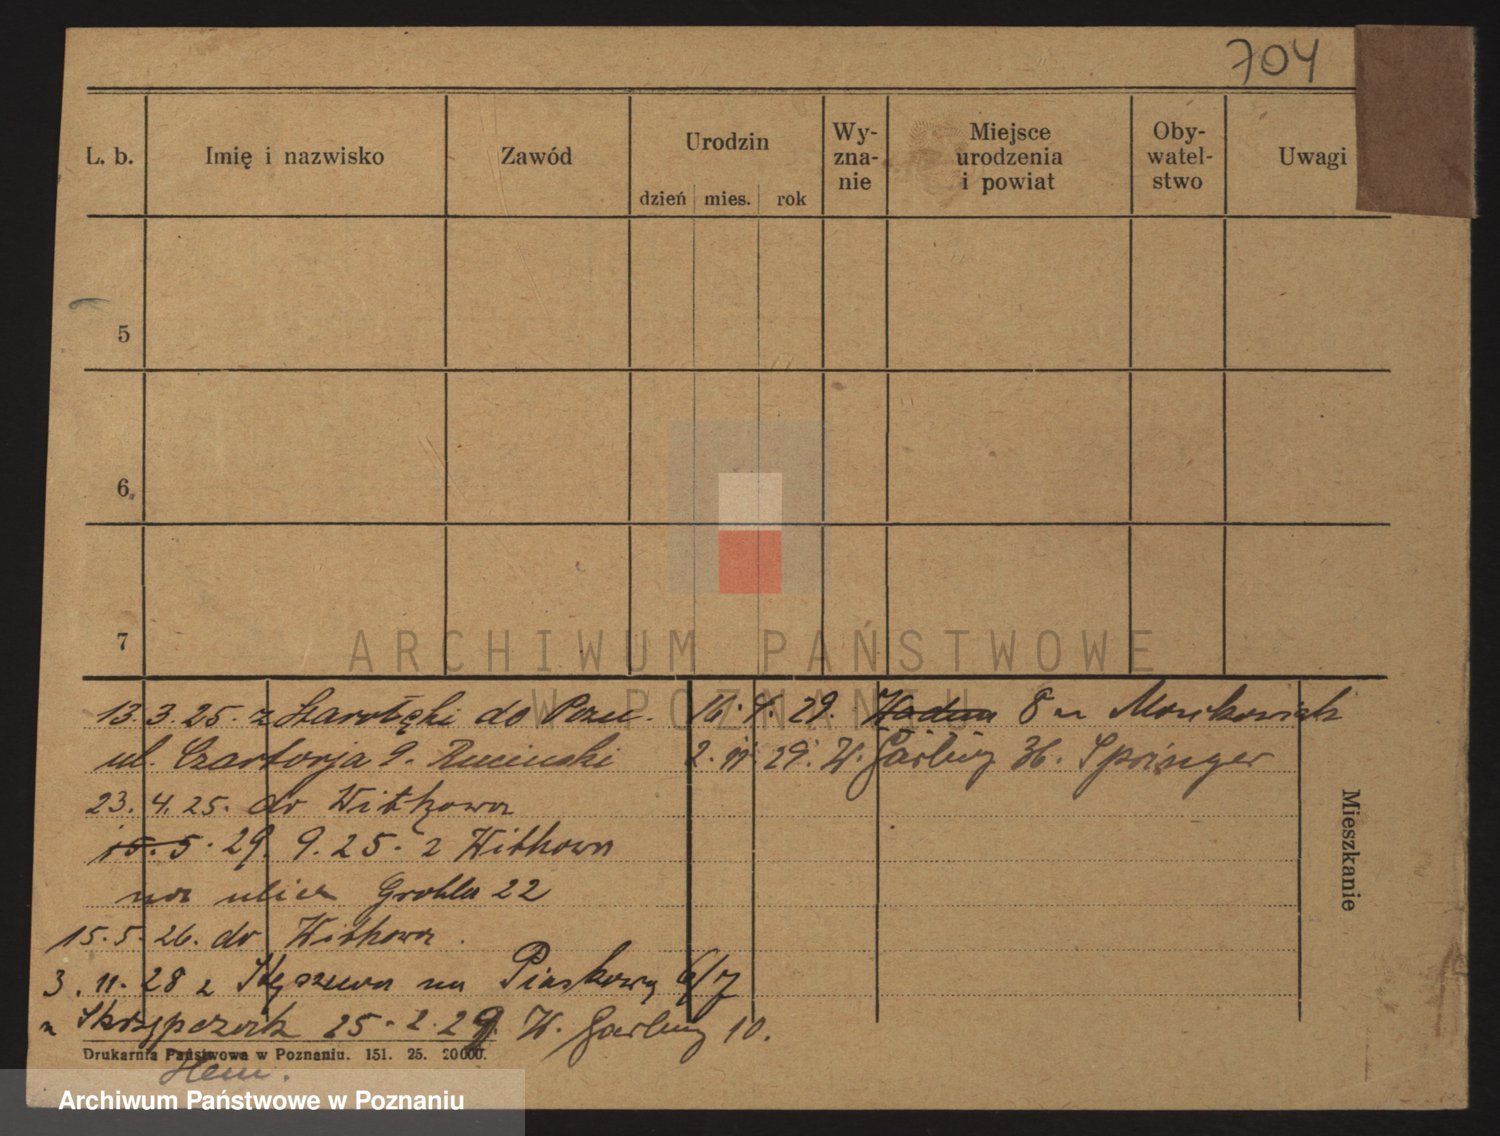 704
L. b.
Imię i nazwisko
Zawód
Urodzin
dzień mies. rok
Wy-
zna-
nie
Miejsce
urodzenia
i powiat
Oby-
watel-
stwo
Uwagi
5
6
7
ARCHIWUM PAŃSTWOWE
W POZNANIU
13.3.25. z Starołęki do Pozn.
ul. Czartorja 9. Ruciński
23.4.25. do Witkowa
15.5. 29. 9. 25. z Witkowa
na ulica Grobla 22
15.5.26. do Witkowa.
3.11.28 z Stęszewa na Piaskową 6/7
u Skrzypczak 25.2.29. W. Garbary 10.
29. 8 u
2. 11. 29. W. Garbary 36. Springer
Mieszkanie
Drukarnia Państwowa w Poznaniu. 151. 25. 20000.
Archiwum Państwowe w Poznaniu